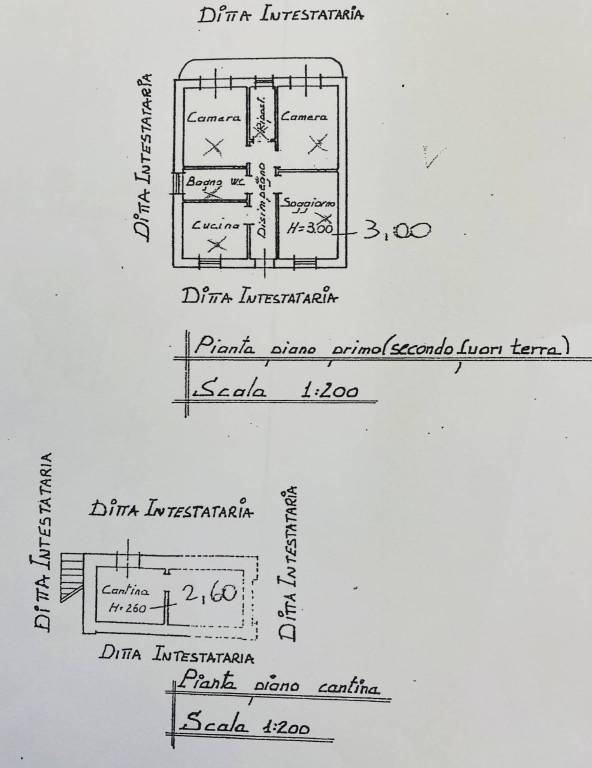 Ditta Intestataria
Ditta Intestataria
Camera
Ripost.
Camera
Bagno WC
Disimpegno
Soggiorno
Cucina
H=3.00
3,00
Ditta Intestataria
Pianta piano primo (secondo fuori terra)
Scala 1:200
Ditta Intestataria
Ditta Intestataria
Ditta Intestataria
Cantina
H=260
2,60
Ditta Intestataria
Pianta piano cantina
Scala 1:200